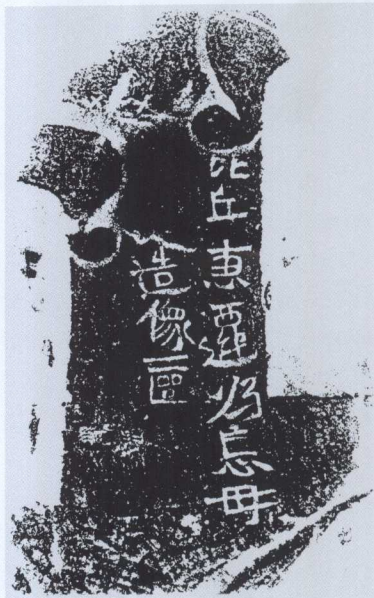 比丘惠遷為忘母
造像一區